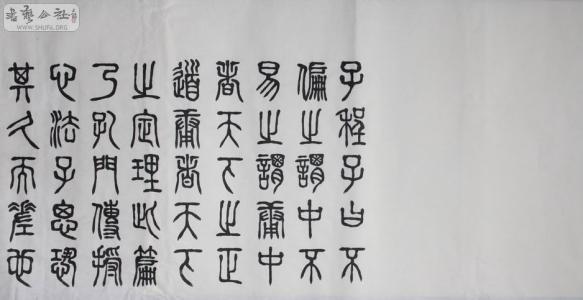 子程子曰不
偏之謂中不
易之謂庸中
者天下之正
道庸者天下
之定理此篇
乃孔門傳授
心法子思恐
其久而差也
書藝公社
WWW.SHUFA.ORG